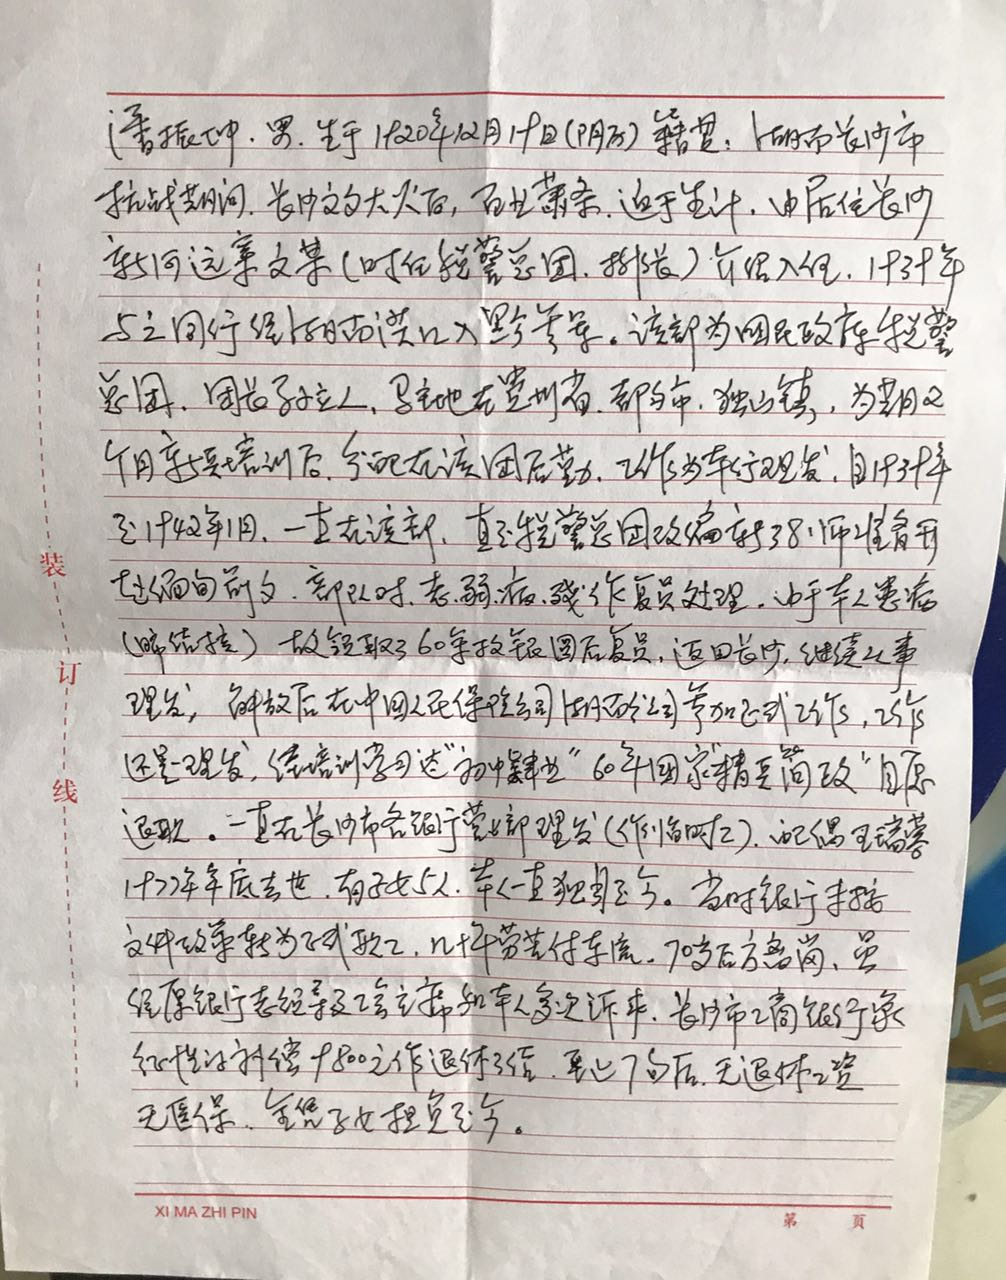 潘振坤.男.生于1920年12月19日(阴历)籍贯:湖南长沙市
抗战期间.长沙文夕大火后,百业萧条.迫于生计.由居住长沙
新河远亲文某(时任税警总团.排长)介绍入伍.1939年
与之同行经湖南洪江入黔参军。该部为国民政府税警
总团.团长孙立人.驻地在贵州省.都匀市.独山镇,为期2
个月新兵培训后.分配在该团后勤.工作为本行理发.自1939年
至1942年1月.一直在该部.直至税警总团改编新38师准备开
赴缅甸前夕.部队对.老.弱.病.残作复员处理.由于本人患病
(肺结核)故领取了60年政银圆后复员.返回长沙.继续从事
理发,解放后在中国人民保险公司湖南分公司参加正式工作,工作
还是理发.经培训学习达"初中肄业"60年国家"精兵简政"自愿
退职.一直在长沙市各银行营业部理发(作临时工).配偶王瑞蓉
1977年年底去世.有子女5人.本人一直独身至今。当时银行未按
文件改革转为正式职工.几十年劳苦付东流.70岁后方离岗.虽
经原银行老经导及工会主席和本人多次诉求.长沙市工商银行象
征性的补偿9800元作退休了结.至此7旬后.无退休工资
无医保.全凭子女担负至今。
装
订
线
XI MA ZHI PIN
第 页